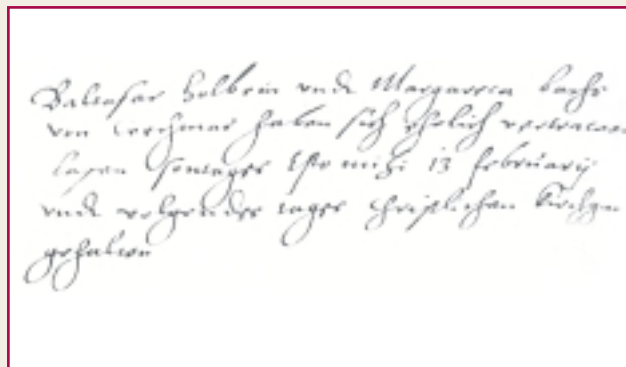 Baltasar Holbein vnd Margareta
von haben sich ehelich vertrawen
lasen Sontages Esto mihi 13 february
vnd volgendes tages christlichen kirchgan
gehalten